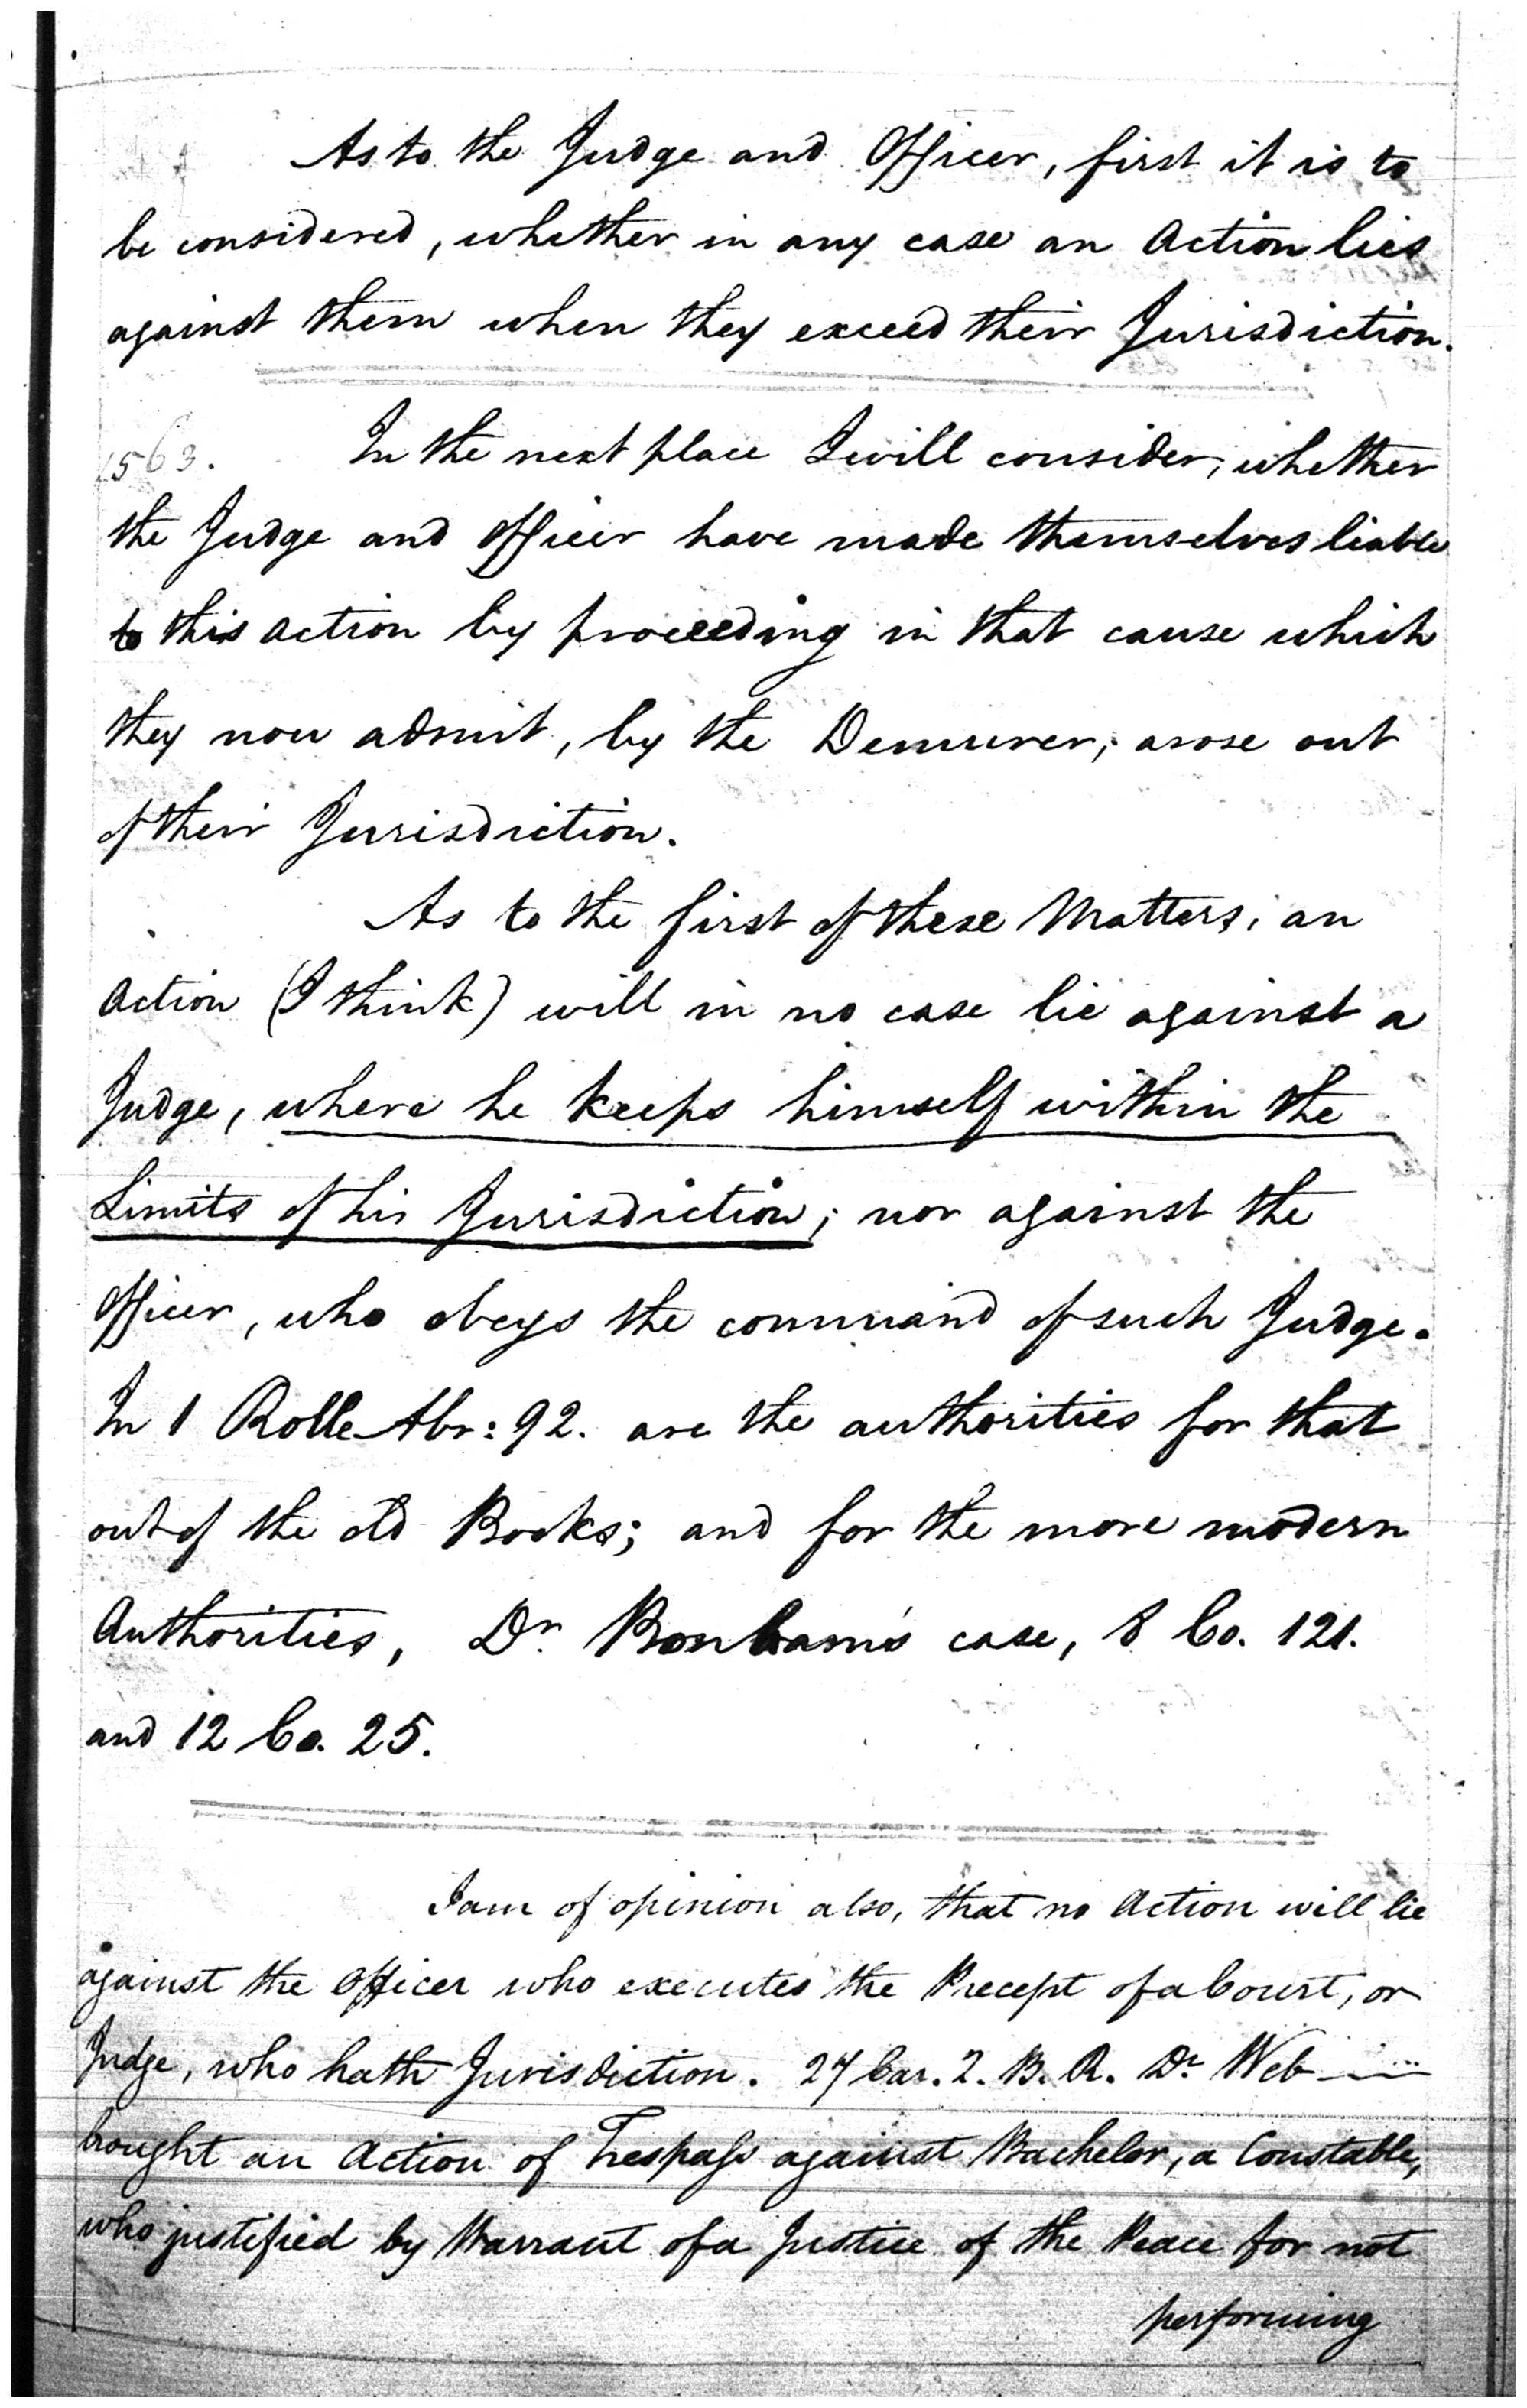 As to the Judge and Officer, first it is to
be considered, whether in any case an Action lies
against them when they exceed their Jurisdiction.
1563. In the next place I will consider, whether
the Judge and Officer have made themselves liable
to this action by proceeding in that cause which
they now admit, by the Demurrer, arose out
of their Jurisdiction.
As to the first of these Matters, an
Action (I think) will in no case lie against a
Judge, where he keeps himself within the
Limits of his Jurisdiction; nor against the
Officer, who obeys the command of such Judge.
In 1 Rolle Abr: 92. are the authorities for that
out of the old Books; and for the more modern
Authorities, Dr. Bonham's case, 8 Co. 121.
and 12 Co. 25.
I am of opinion also, that no Action will lie
against the Officer who executes the Precept of a Court, or
Judge, who hath Jurisdiction. 27 Car. 2. B. R. Dr. Web
brought an Action of Trespass against Bachelor, a Constable,
who justified by Warrant of a Justice of the Peace for not
performing